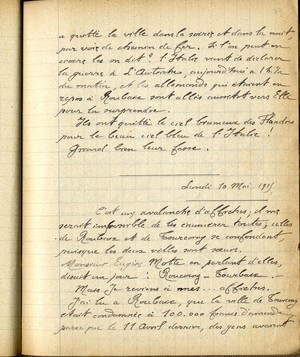 a quitté la ville dans la soirée et dans la nuit
par voie de chemin de fer. Si l'on peut en
croire les on dit " l'Italie vient de déclarer
la guerre à l'Autriche, aujourd'hui à
du matin, et les allemands qui étaient en
repos à Roubaix sont allés avec
pour la surprendre.
Ils ont quitté le ciel brumeux des Flandres
pour le beau ciel bleu de l'Italie !
Grand bien leur fasse.
Lundi 10 Mai 1915
C'est une avalanche d'affiches; il me
serait impossible de les énumérer toutes; celles
de Roubaix et de Tourcoing se confondent
puisque les deux villes sont sœurs.
Monsieur Eugène Motte en parlant d'elles,
disait un jour : Roucoing - Tourbaix.
Mais je reviens à mes... affiches.
J'ai lu à Roubaix, que la ville de Tourcoing
était condamnée à 100.000 francs d'amende
parce que le 11 Avril dernier, des gens avaient